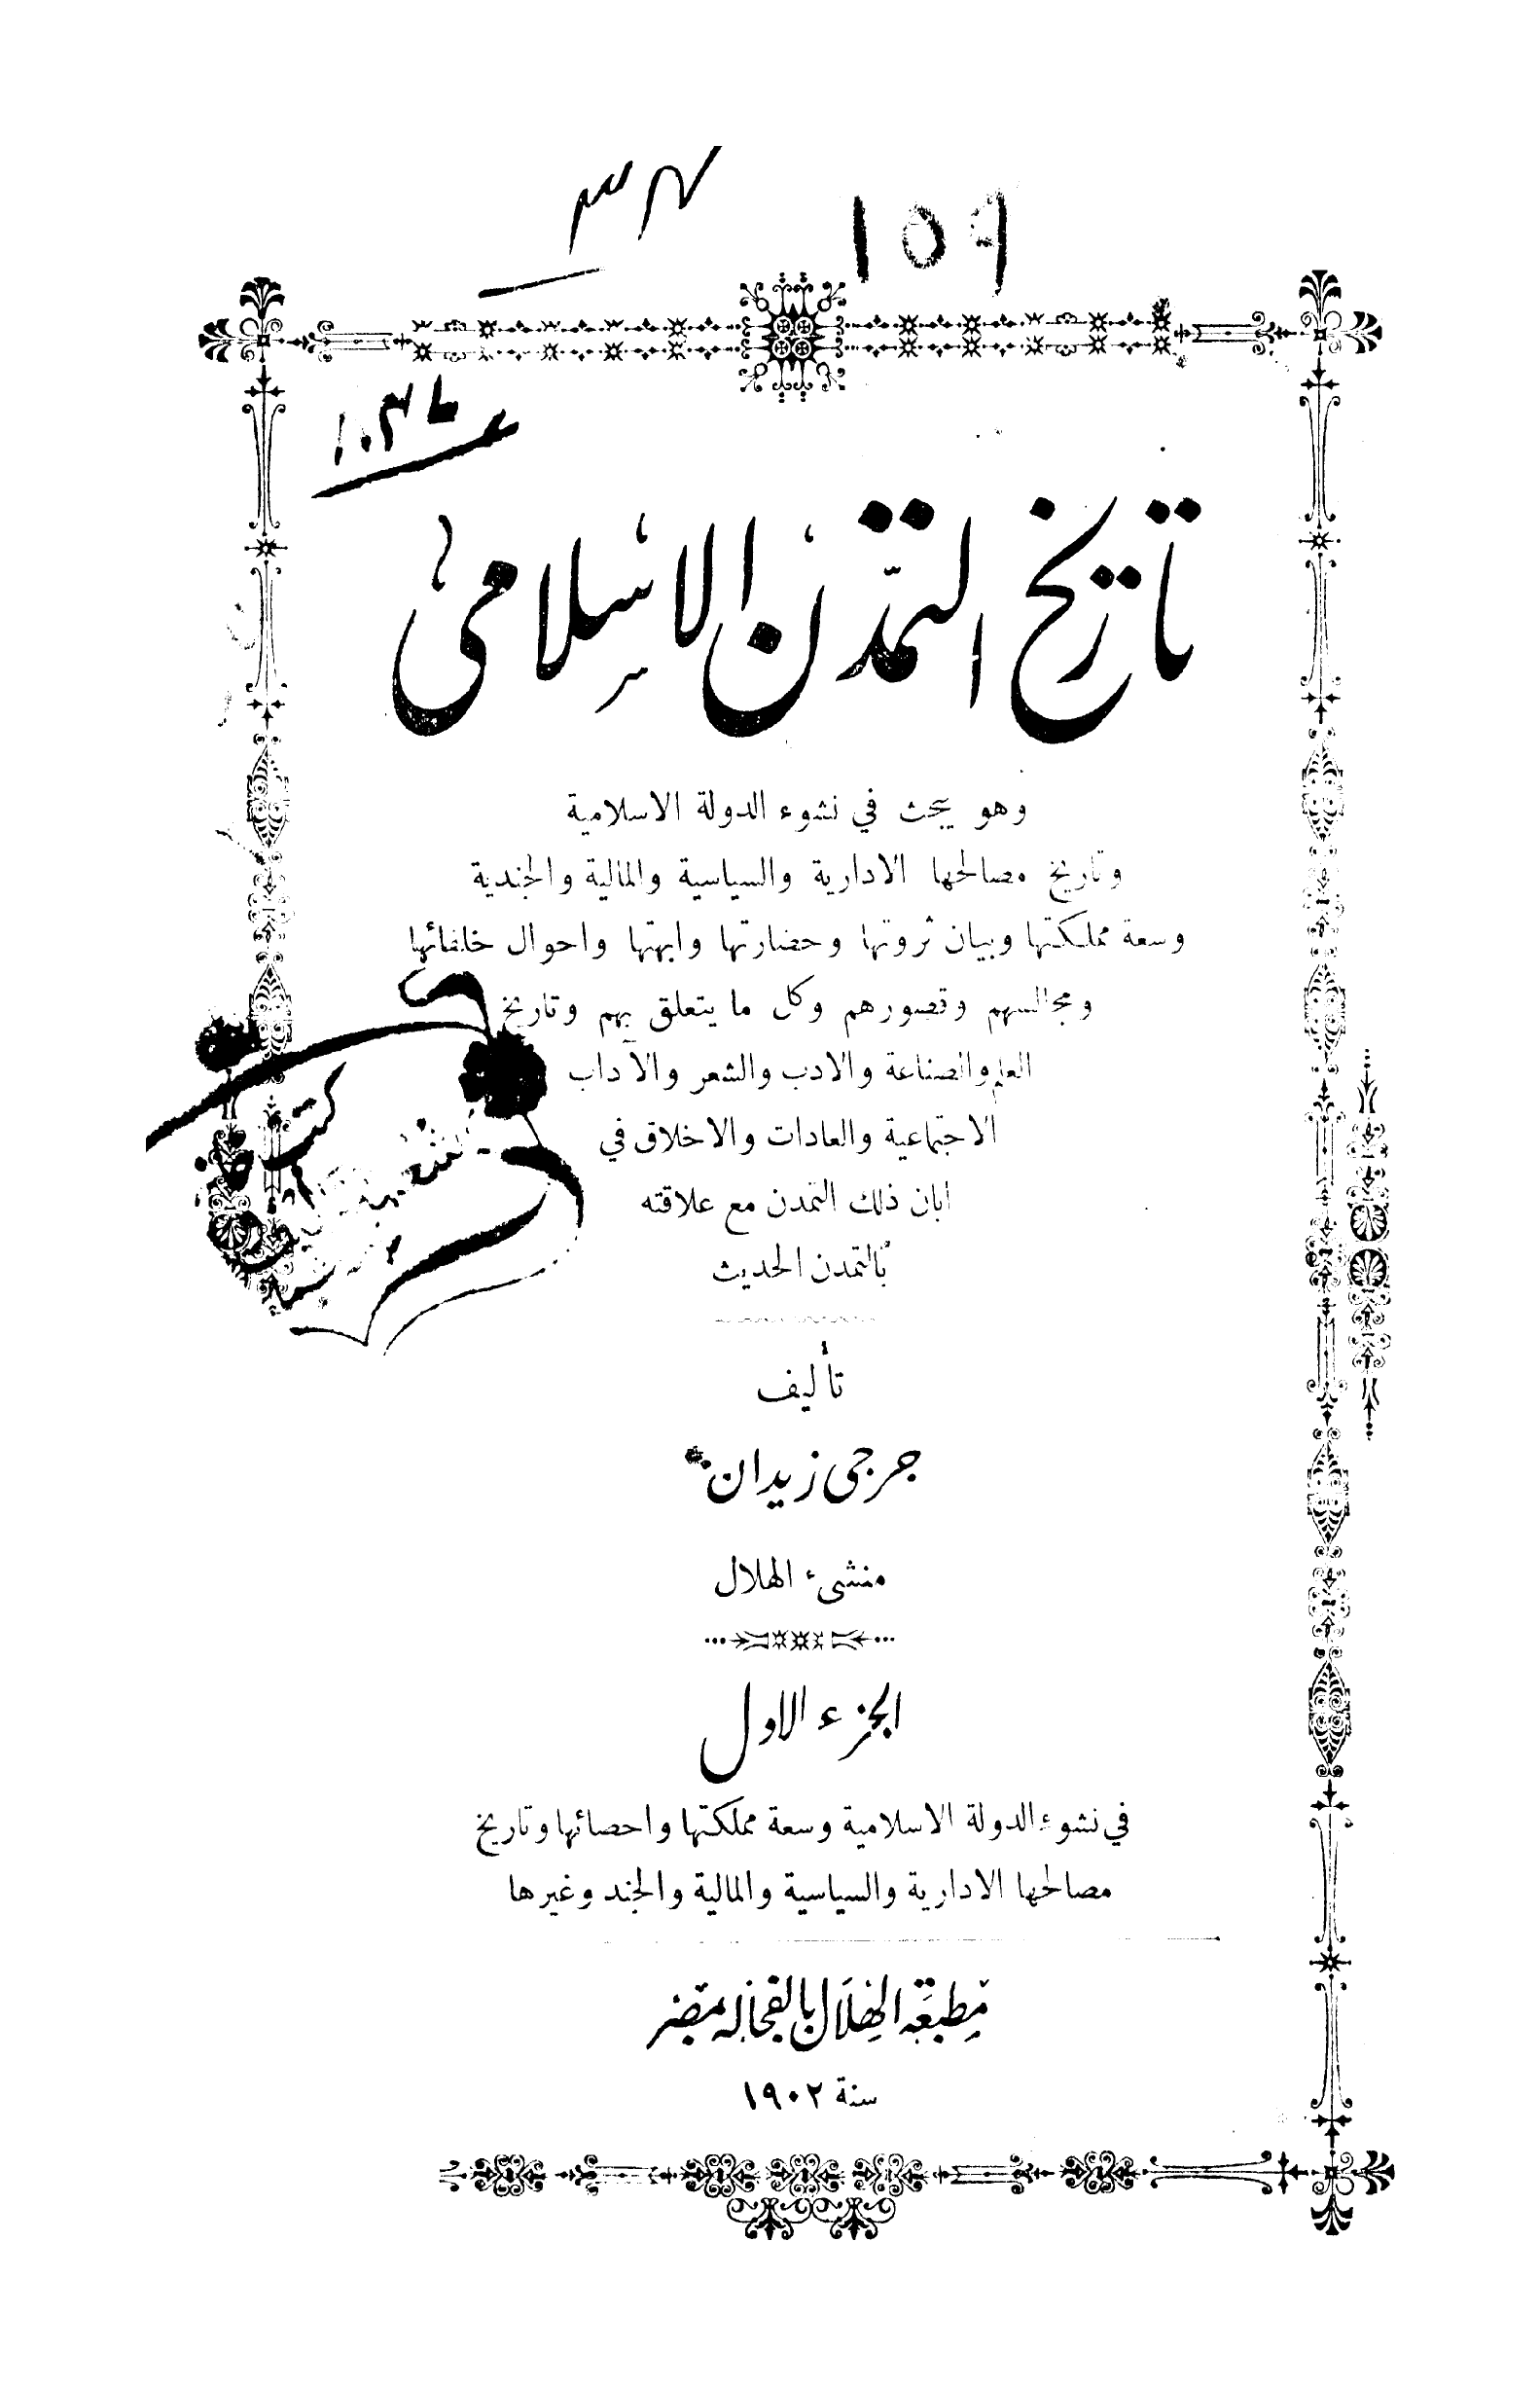 ١٥٩
تاريخ التمدّن الاسلامي
وهو يبحث في نشوء الدولة الاسلامية
وتاريخ مصالحها الادارية والسياسية والمالية والجندية
وسعة مملكتها وبيان ثروتها وحضارتها وابهتها واحوال خلفائها
ومجالسهم وقصورهم وكل ما يتعلق بهم وتاريخ
العلم والصناعة والادب والشعر والآداب
الاجتماعية والعادات والاخلاق في
ابان ذلك التمدن مع علاقته
بالتمدن الحديث
تأليف
جرجي زيدان
منشىء الهلال
الجزء الاول
في نشوء الدولة الاسلامية وسعة مملكتها واحصائها وتاريخ
مصالحها الادارية والسياسية والمالية والجند وغيرها
مطبعة الهلال بالفجالة بمصر
سنة ١٩٠٢